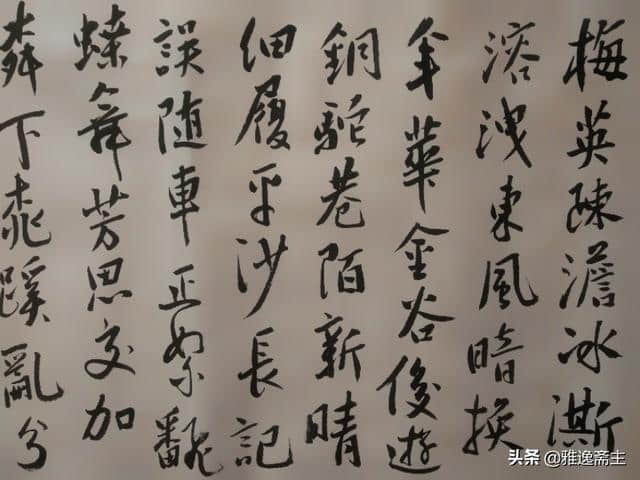 梅英疎澹冰澌
溶洩東風暗換
年華金谷俊遊
銅駝巷陌新晴
細履平沙長記
誤随車正絮飜
蝶舞芳思交加
下桃蹊亂分
头条 @雅逸斋主